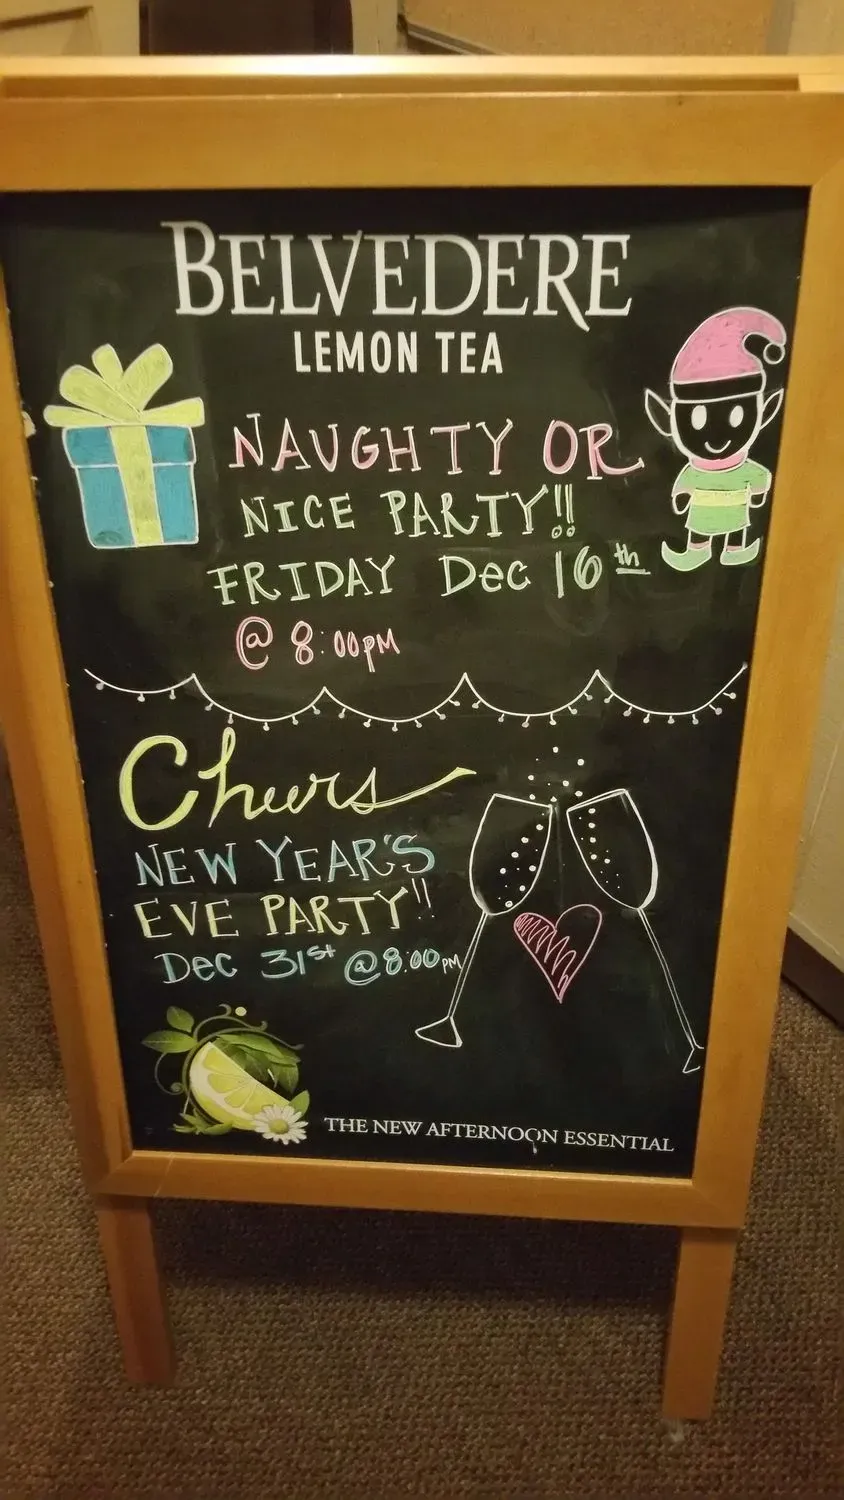 BELVEDERE
LEMON TEA
NAUGHTY OR
NICE PARTY!!
FRIDAY Dec 16th
@ 8:00PM
Cheers
NEW YEAR'S
EVE PARTY!!
Dec 31st @8:00PM
THE NEW AFTERNOON ESSENTIAL